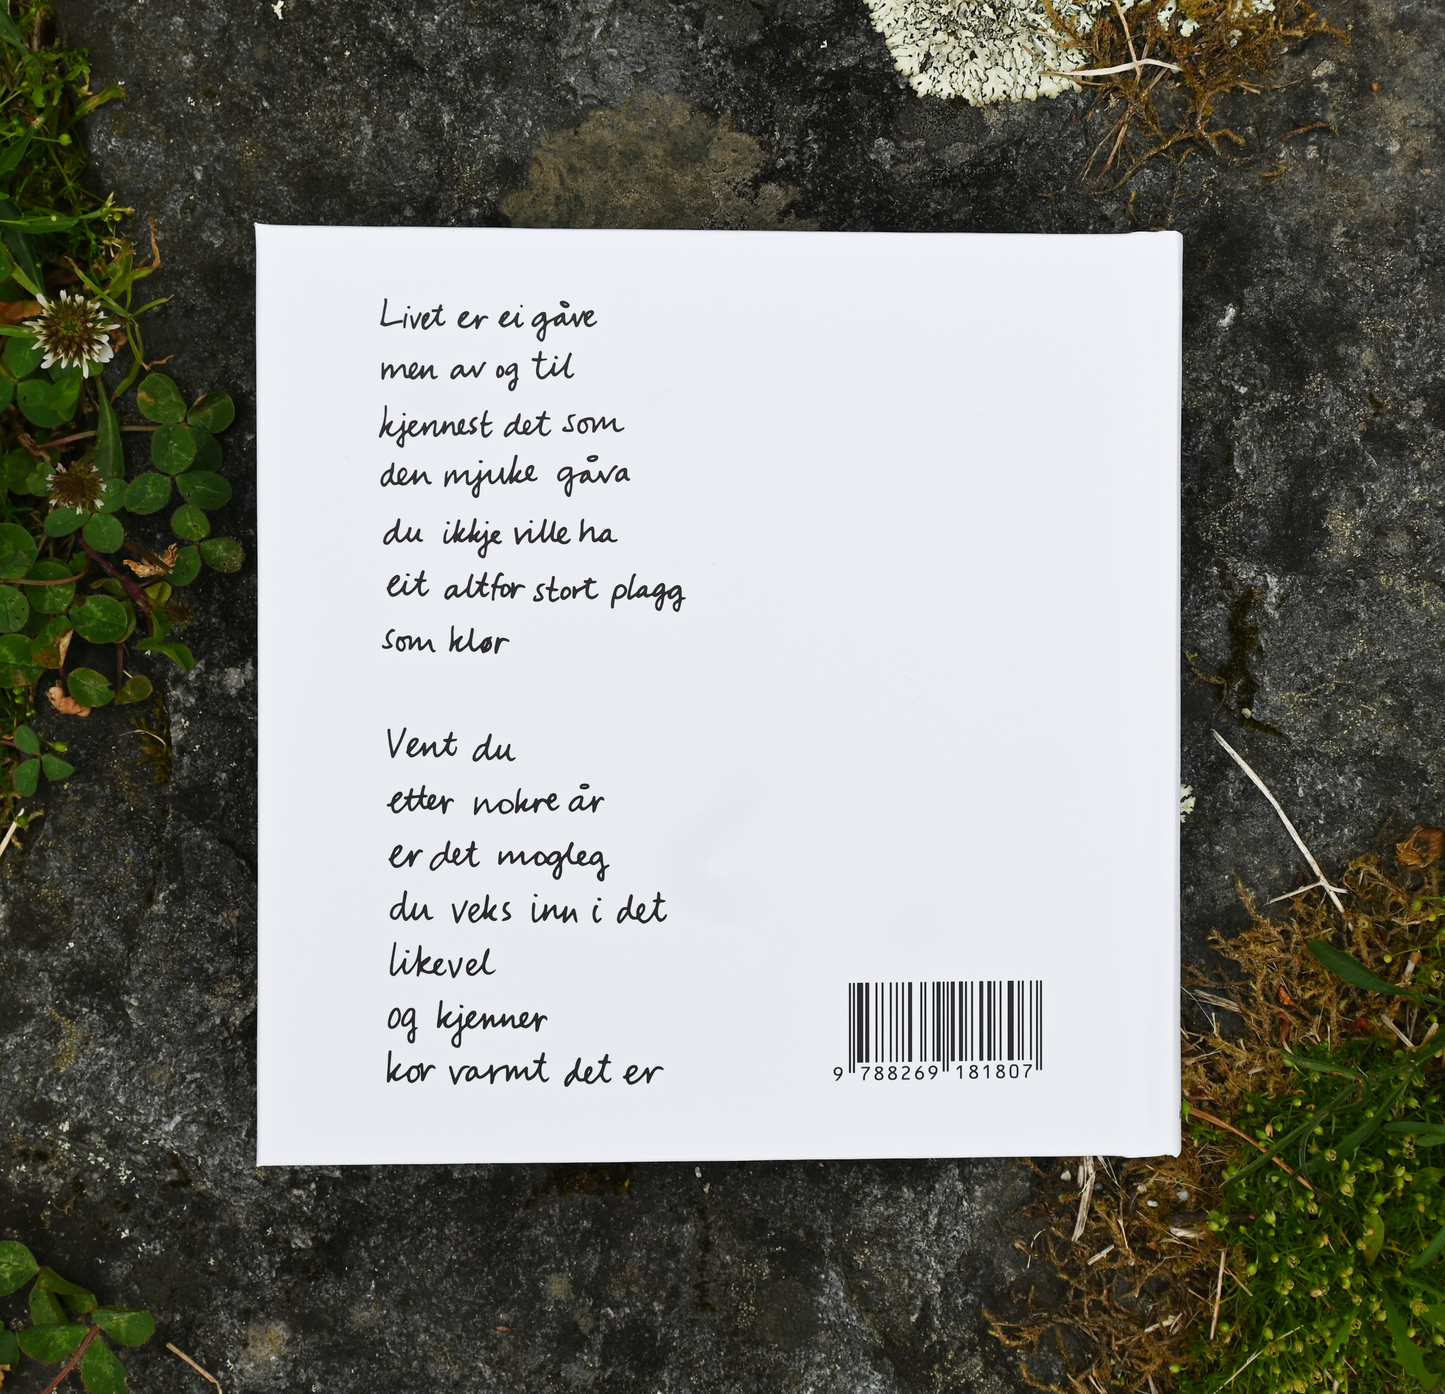 Livet er ei gåve
men av og til
kjennest det som
den mjuke gåva
du ikkje ville ha
eit altfor stort plagg
som klør
Vent du
etter nokre år
er det mogleg
du veks inn i det
likevel
og kjenner
kor varmt det er
9 788269 181807